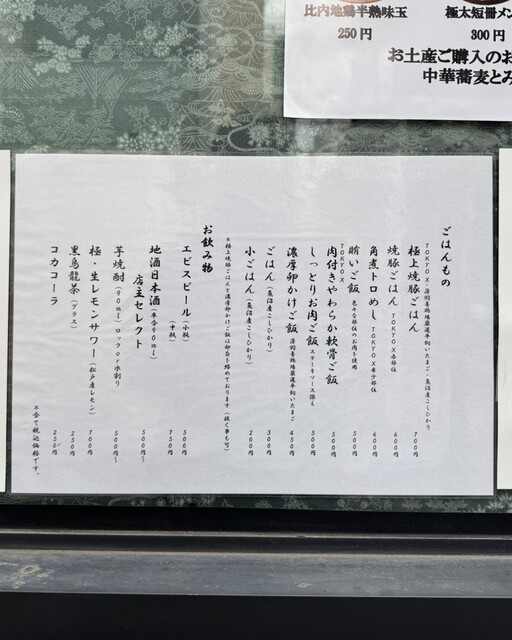 比内地鶏半熟味玉
250円
極太短冊メン
300円
お土産ご購入のお
中華蕎麦とみ
ごはんもの
TOKYO X・深羽養鶏場厳選平飼いたまご・魚沼産こしひかり
極上焼豚ごはん 700円
焼豚ごはん TOKYO X各部位 600円
角煮トロめし TOKYO X希少部位 600円
賄いご飯 色々な部位のお肉を使用 500円
TOKYO X
肉付きやわらか軟骨ご飯 500円
しっとりお肉ご飯 ステーキソース添え 500円
濃厚卵かけご飯 深羽養鶏場厳選平飼いたまご 450円
ごはん(魚沼産こしひかり) 300円
小ごはん(魚沼産こしひかり) 200円
※極上焼豚ごはんと濃厚卵かけご飯は卵白を絡めております(抜く事も可)
お飲み物
エビスビール(小瓶) 500円
(中瓶) 750円
地酒日本酒(半合90ml)
店主セレクト 500円〜
芋焼酎(90ml)ロックor水割り 500円〜
極・生レモンサワー(松戸産レモン) 700円
黒烏龍茶(グラス) 250円
コカコーラ 250円
※全て税込価格です。